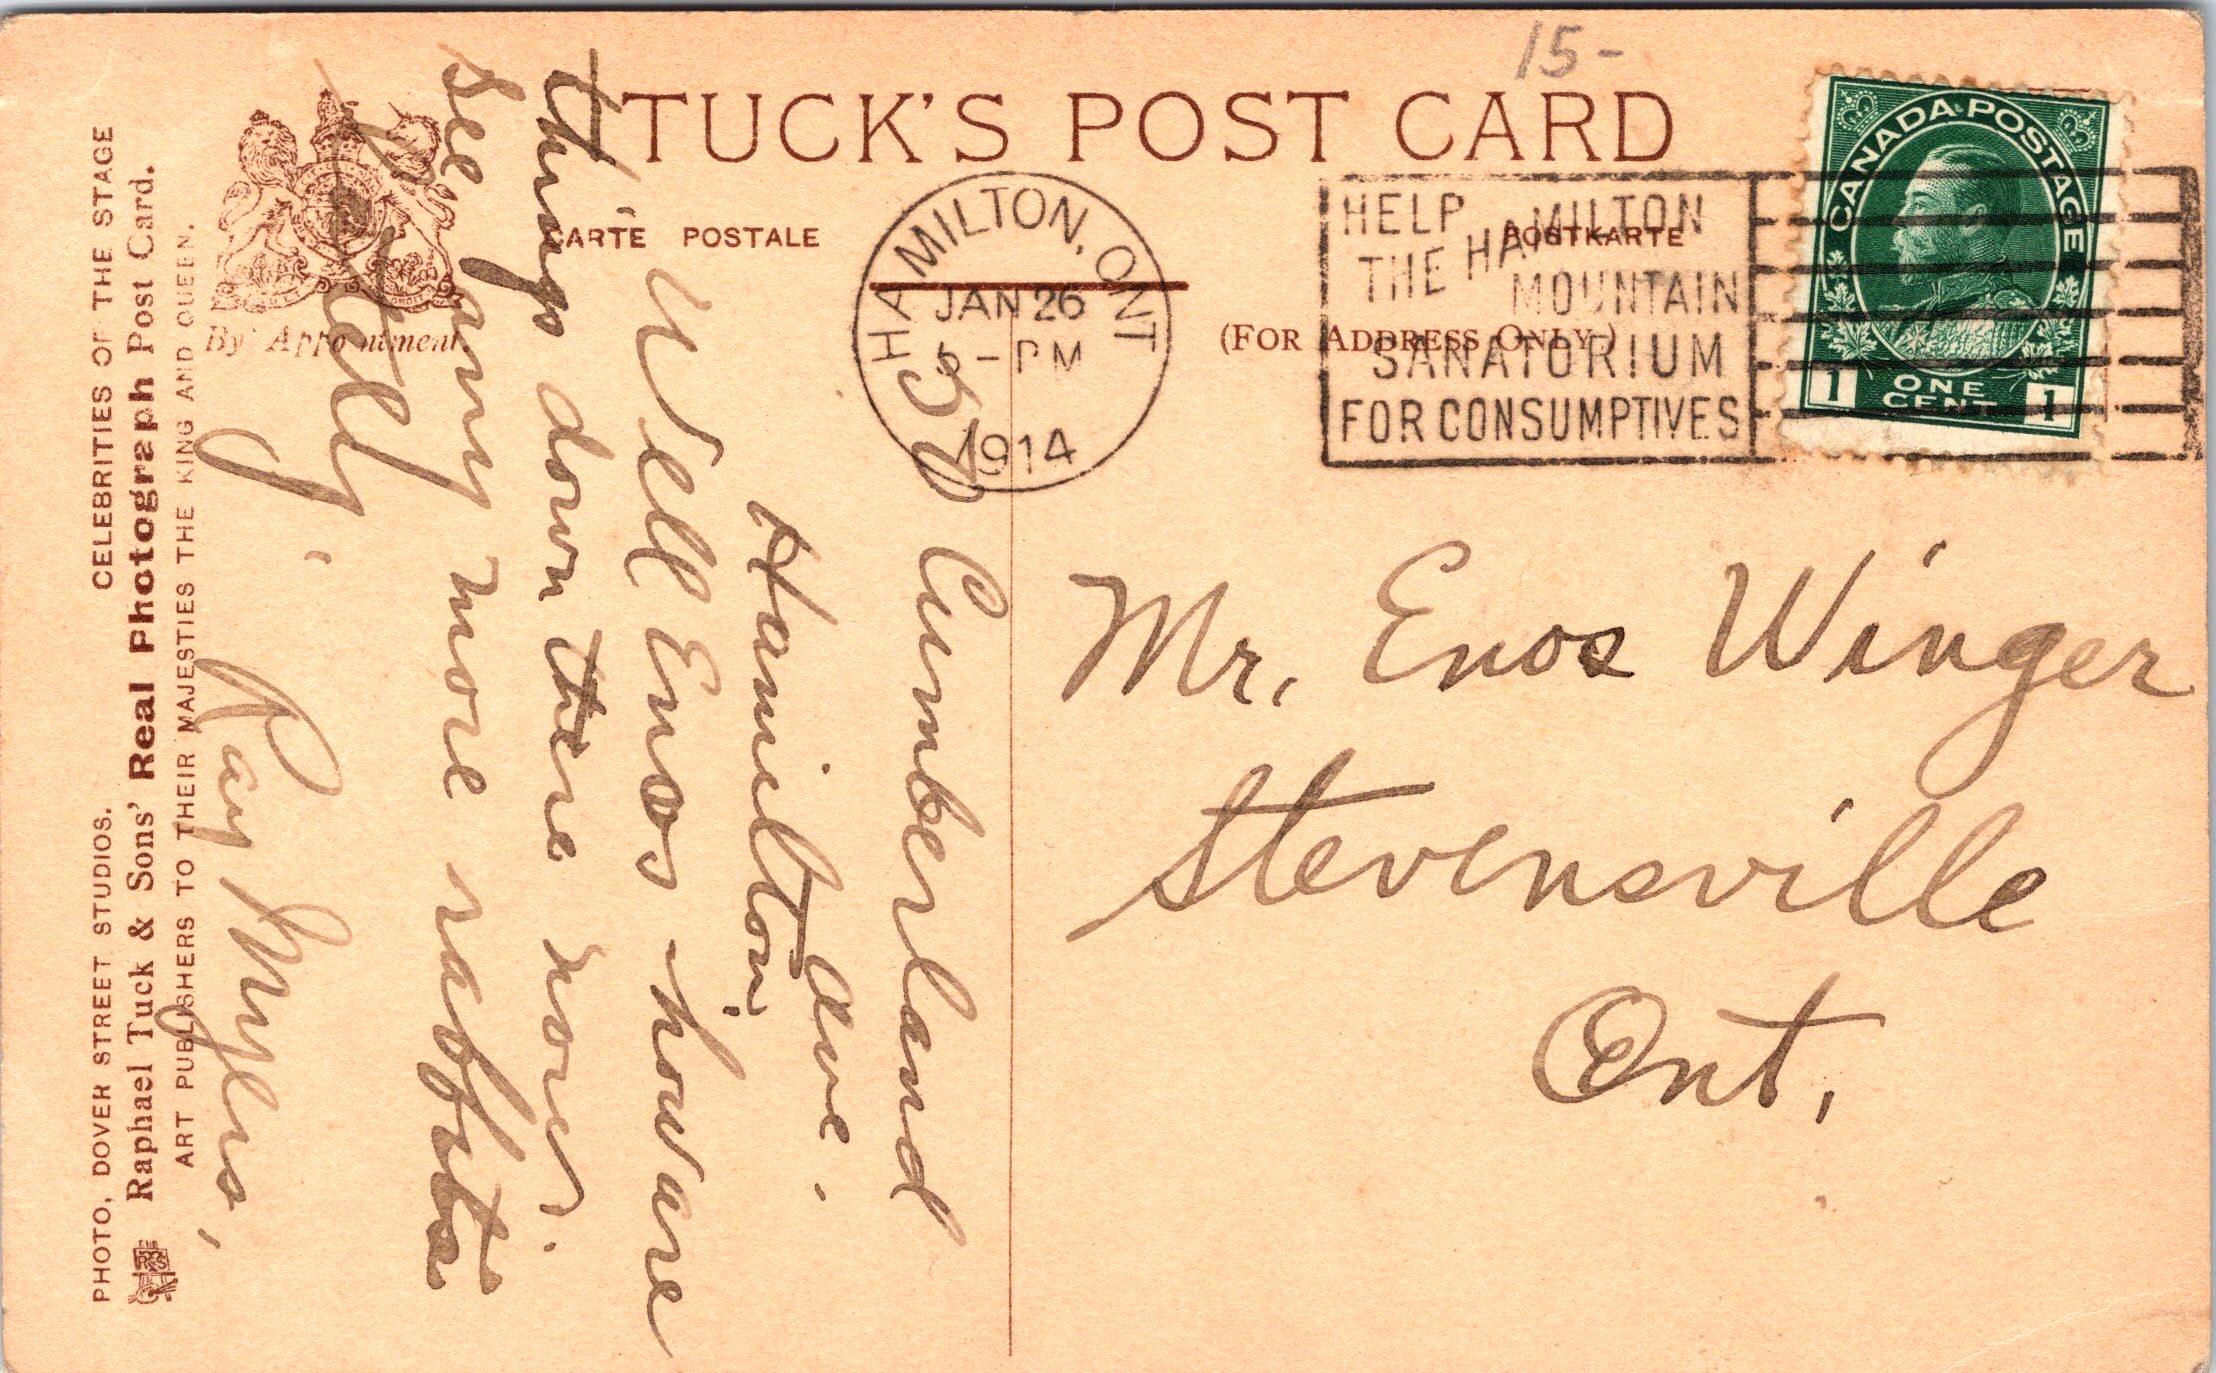 15-
TUCK'S POST CARD
CARTE POSTALE
POSTKARTE
(FOR ADDRESS ONLY.)
By Appointment.
HAMILTON, ONT
JAN 26
5 - PM
1914
HELP
THE HAMILTON
MOUNTAIN
SANATORIUM
FOR CONSUMPTIVES
CANADA POSTAGE
1 ONE CENT 1
Mr. Enos Winger
Stevensville
Ont.
Cumberland
ave.
Hamilton
Well Enos how are
things down there now.
See any more rabbits
Ray Myers,
PHOTO, DOVER STREET STUDIOS. CELEBRITIES OF THE STAGE
Raphael Tuck & Sons' Real Photograph Post Card.
ART PUBLISHERS TO THEIR MAJESTIES THE KING AND QUEEN.